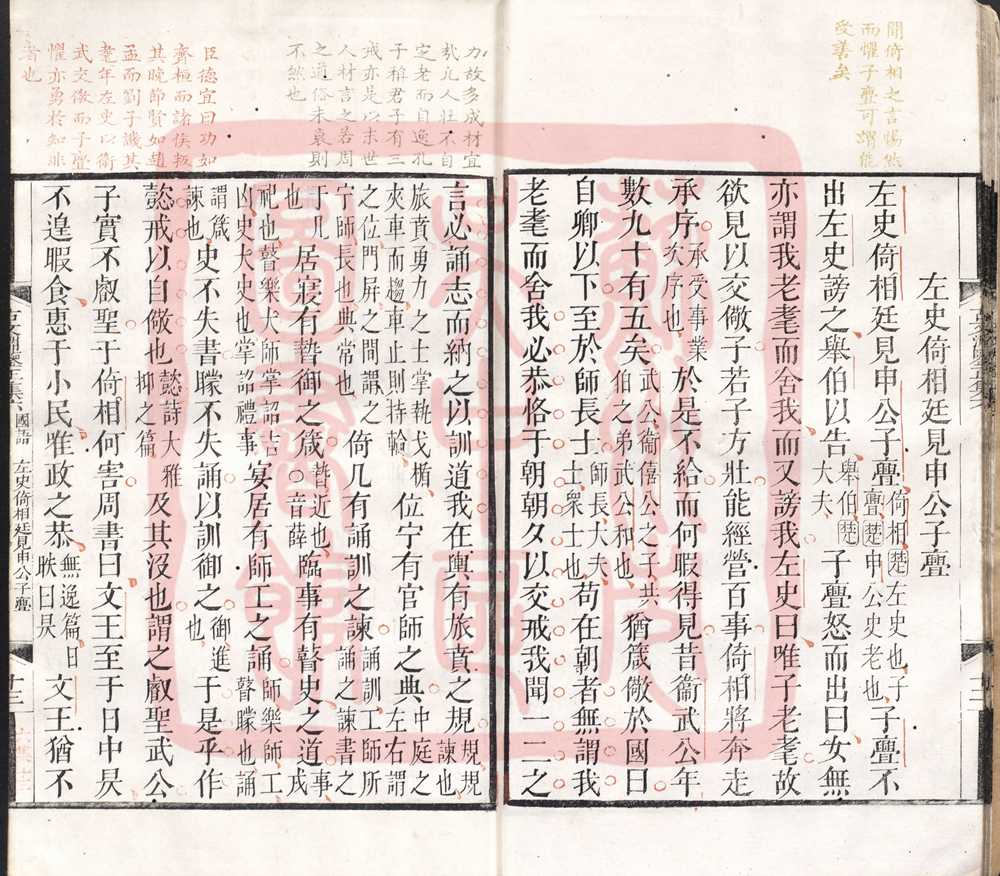 聞倚相之言惕然
而懼子亹可謂能
受善矣
左史倚相廷見申公子亹
左史倚相廷見申公子亹倚相楚左史也子亹楚申公史老也子亹不
出左史謗之舉伯以告舉伯楚大夫子亹怒而出曰女無
亦謂我老耄而舍我而又謗我左史曰唯子老耄故
欲見以交儆子若子方壯能經營百事倚相將奔走
承序承受事業次序也於是不給而何暇得見昔衞武公年
數九十有五矣武公衞僖公之子共伯之弟武公和也猶箴儆於國曰
自卿以下至於師長士師長大夫士衆士也苟在朝者無謂我
老耄而舍我必恭恪于朝朝夕以交戒我聞一二之
力故多成材宜
哉凡人壯不自
定老而自逸孔
子稱君子有三
戒亦是以末世
人材言之若周
之道俗未衰則
不然也
臣德宜曰功如
齊桓而諸侯叛
其晚節賢如趙
孟而劉子譏其
耄年左史以衞
武交儆而子亹
懼亦勇於知非
者也
言必誦志而納之以訓道我在輿有旅賁之規規規諫也
旅賁勇力之士掌執戈楯夾車而趨車止則持輪位宁有官師之典中庭之左右謂
之位門屏之間謂之宁師長也典常也倚几有誦訓之諫誦訓工師所誦之諫書之
于几也居寢有暬御之箴暬近也○音薛臨事有瞽史之道事戎
祀也瞽樂大師掌詔吉凶史大史也掌詔禮事宴居有師工之誦師樂師工瞽矇也誦
謂箴諫也史不失書矇不失誦以訓御之御進也于是乎作
懿戒以自儆也懿詩大雅抑之篇及其沒也謂之叡聖武公
子實不叡聖于倚相何害周書曰文王至于日中昃
不遑暇食惠于小民唯政之恭無逸篇日昳曰昃文王猶不
國語 左史倚相廷見申公子亹
十三